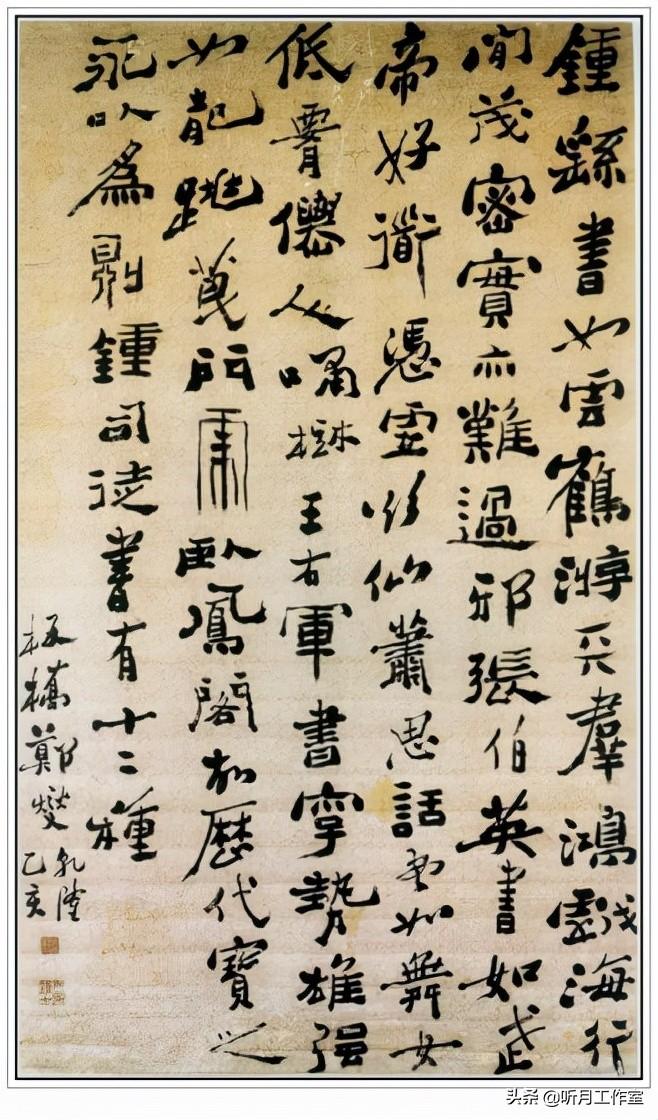 鍾繇書如雲鶴游天羣鴻戲海行
間茂密實亦難過邪張伯英書如武
帝好道憑虛欲仙蕭思話書如舞女
低腰僊人嘯樹王右軍書字勢雄強
如龍跳天門虎臥鳳閣故歷代寶之
永以為則鍾司徒書有十二種
板橋鄭燮
乾隆
乙亥
头条 @听月工作室